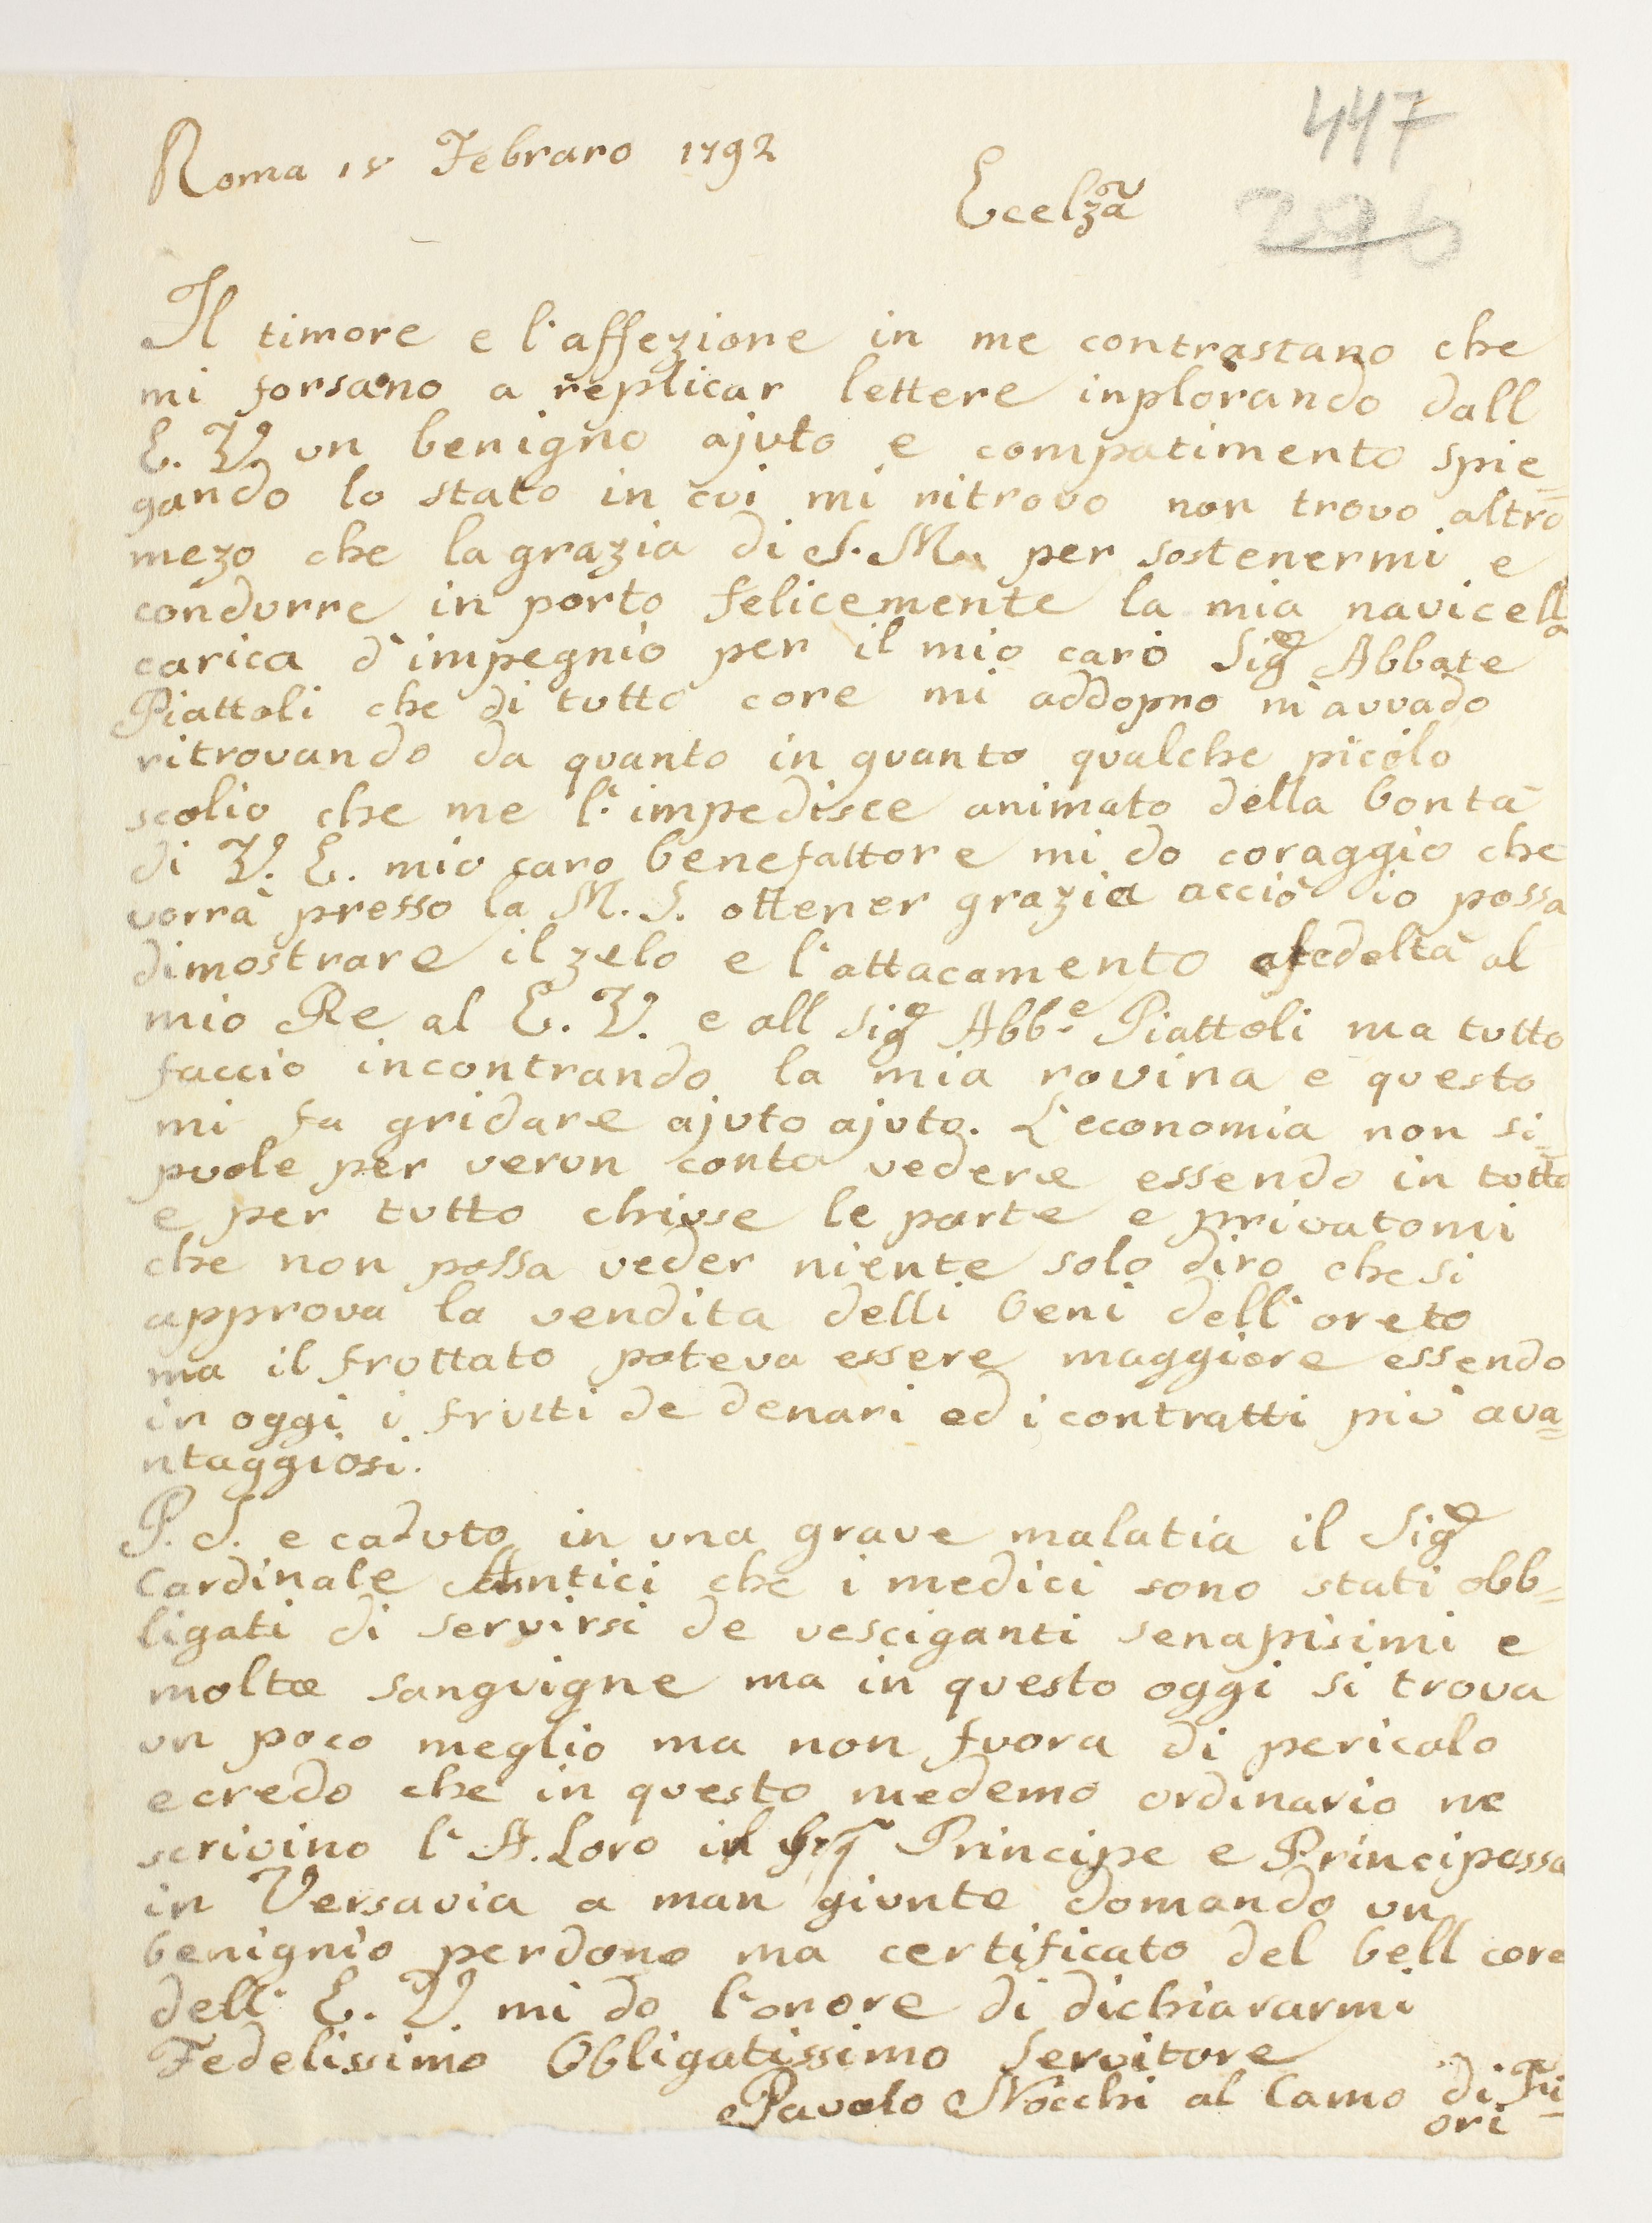 447
226
Roma 15 Febraro 1792
Ecelza
Il timore e l'affezione in me contrastano che
mi forsano a replicar lettere inplorando dall
E. V. un benigno ajuto e compatimento spie=
gando lo stato in cui mi ritrovo non trovo altro
mezo che la grazia di S. M. per sostenermi e
condurre in porto felicemente la mia navicella
carica d'impegnio per il mio caro Sig.e Abbate
Piattoli che di tutto core mi addopno m'avvado
ritrovando da quanto in quanto qualche picolo
scolio che me l'impedisce animato della bontà
di V. E. mio caro benefattore mi do coraggio che
vorrà presso la M. S. ottener grazia acciò io possa
dimostrare il zelo e l'attacamento e fedeltà al
mio Re al E. V. e all Sig.e Abb.e Piattoli ma tutto
faccio incontrando la mia rovina e questo
mi fa gridare ajuto ajuto. L'economia non si=
puole per verun conto vedere essendo in tutto
e per tutto chiuse le porte e privatomi
che non possa veder niente solo diro che si
approva la vendita delli beni dell'oreto
ma il fruttato poteva essere maggiore essendo
in oggi i frutti de denari ed i contratti più ava=
ntaggiosi.
P. S. e caduto in una grave malatia il Sig.e
Cardinale Antici che i medici sono stati obb=
ligati di servirsi de vesciganti senapisimi e
molte sanguigne ma in questo oggi si trova
un poco meglio ma non fuora di pericolo
e credo che in questo medemo ordinario ne
scrivino l'A. Loro il Principe e Principessa
in Versavia a man giunte domando un
benignio perdono ma certificato del bell core
dell' E. V. mi do l'onore di dichiararmi
Fedelissimo Obligatissimo Servitore
Pavolo Nocchi al Camo di Fi=
ori